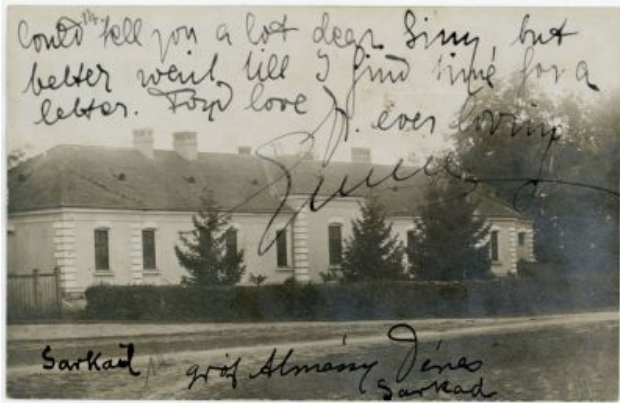 Could tell you a lot dear Simy, but
better wait till I find time for a
letter. Fond love
yr. ever loving
Sarkad
gróf Almásy Dénes
Sarkad